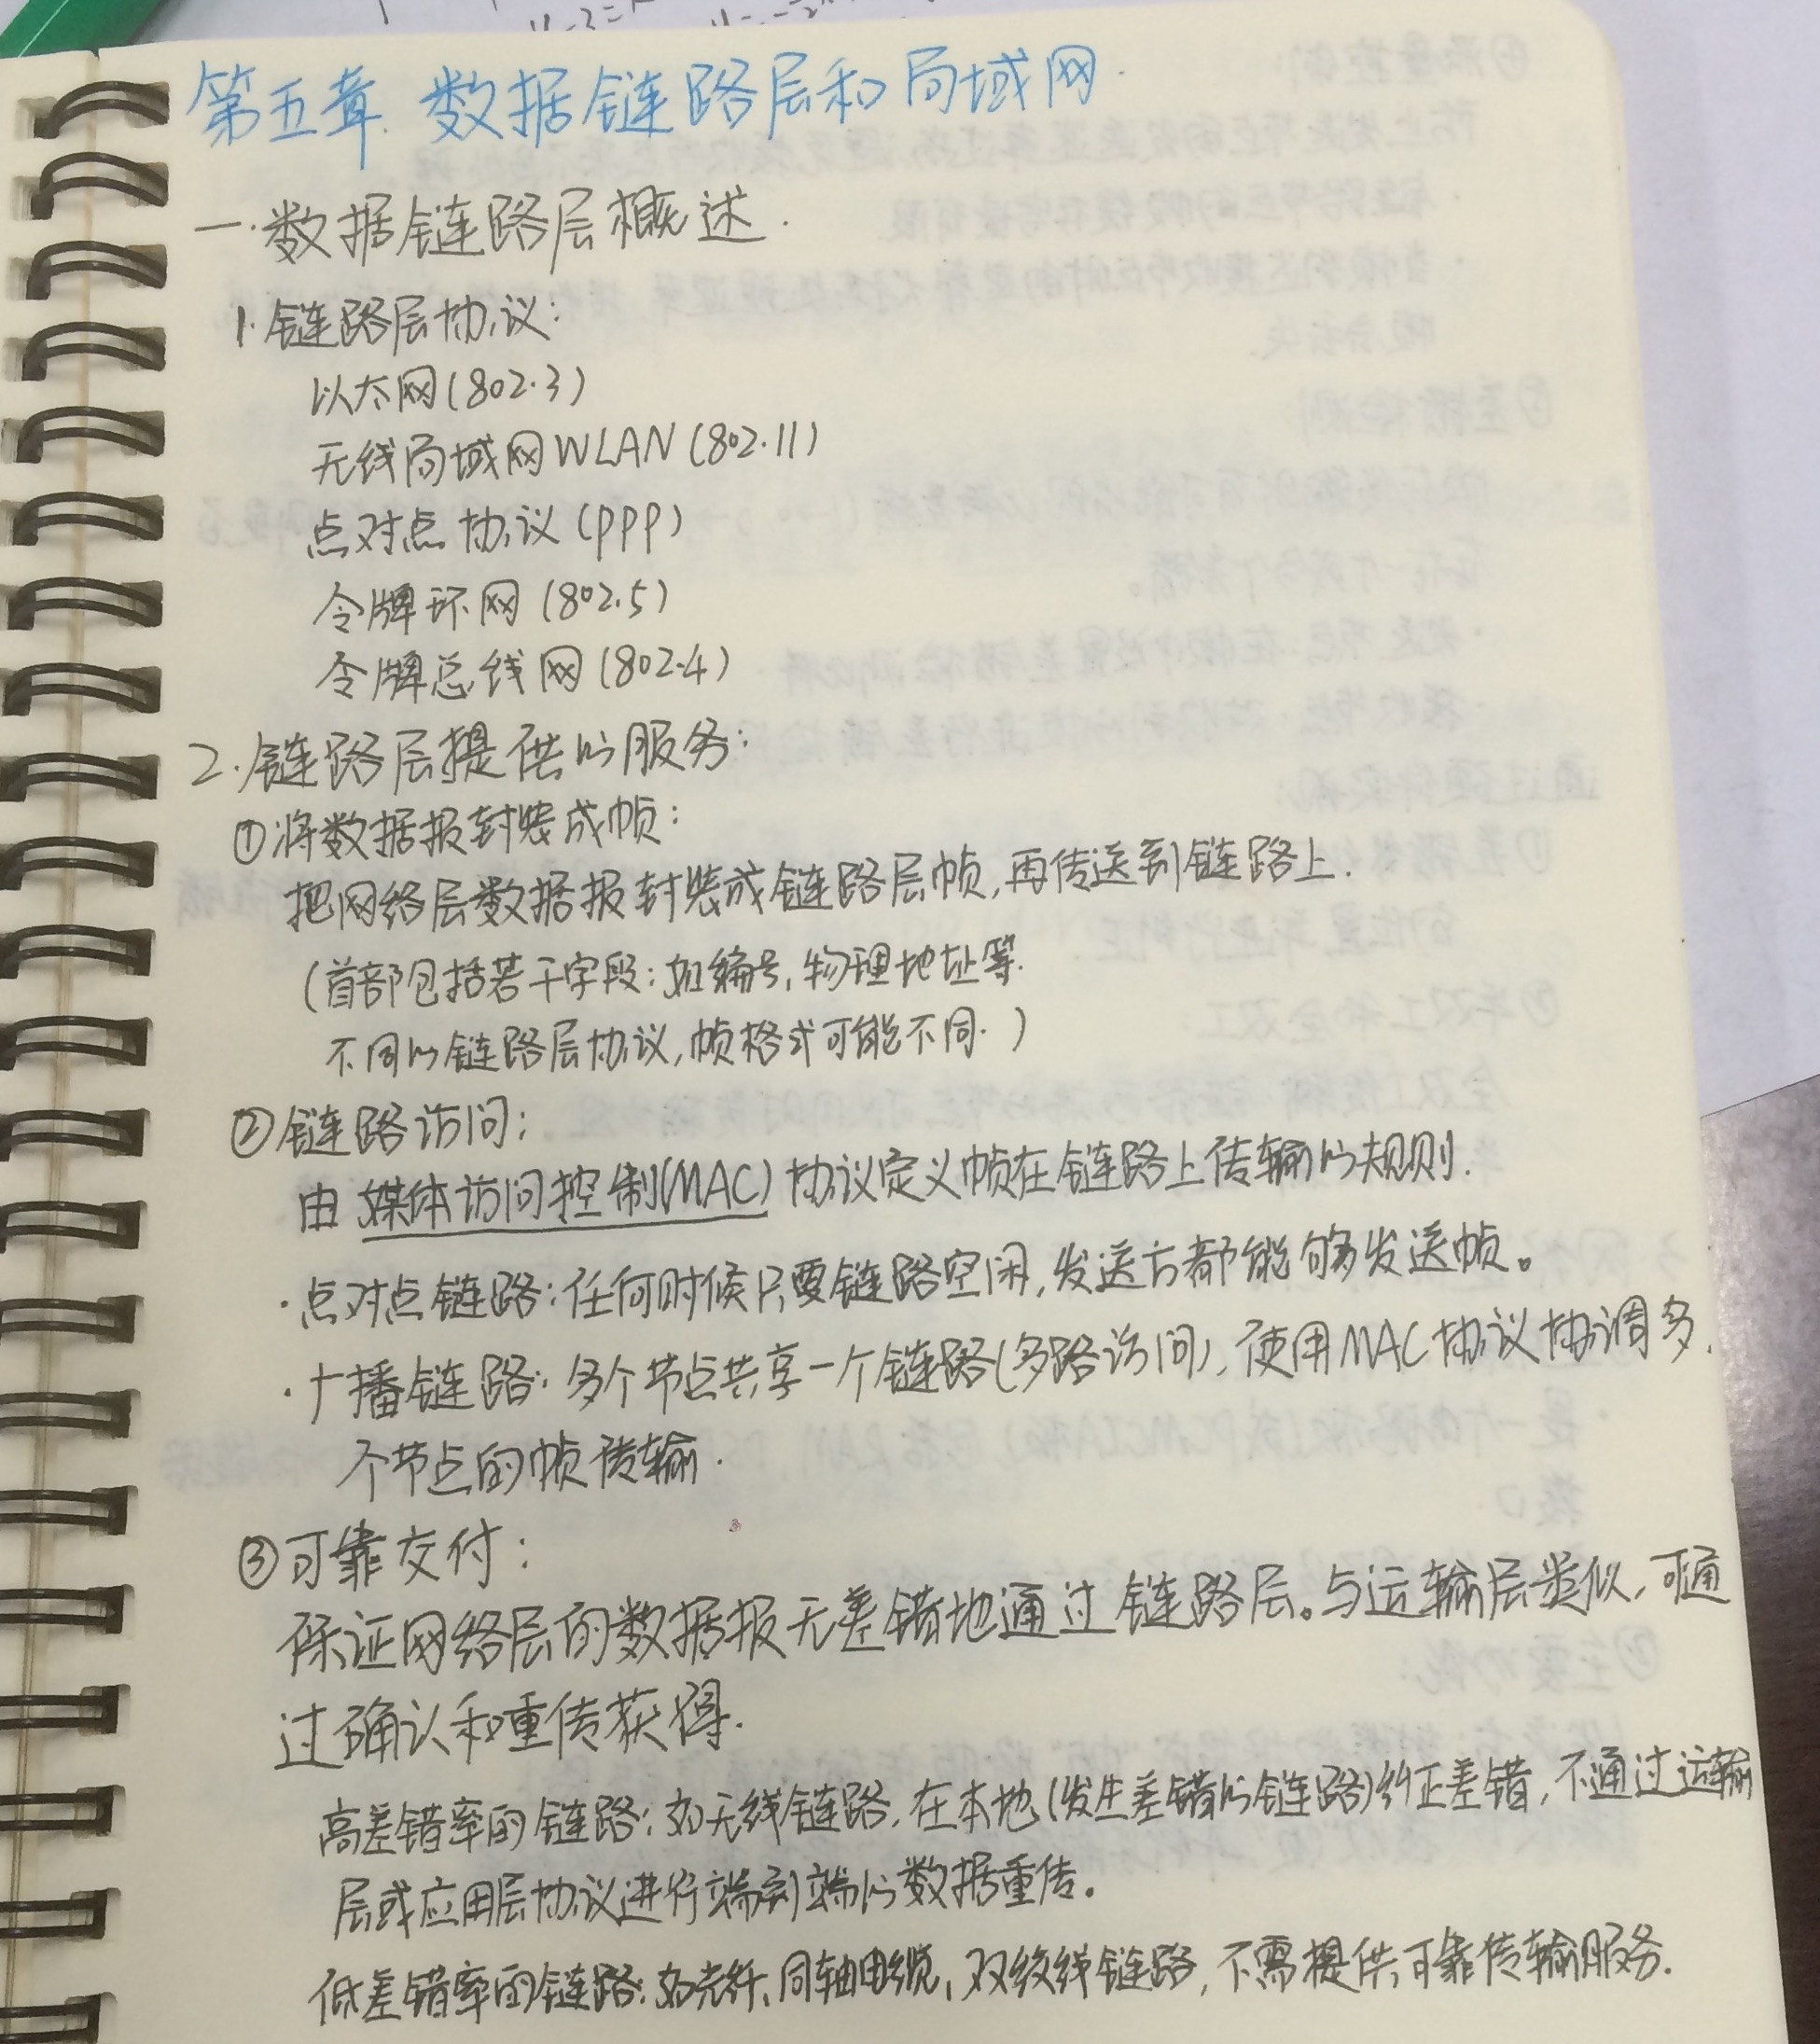 第五章. 数据链路层和局域网.
一.数据链路层概述.
1.链路层协议:
以太网(802.3)
无线局域网WLAN(802.11)
点对点协议(PPP)
令牌环网(802.5)
令牌总线网(802.4)
2.链路层提供的服务:
①将数据报封装成帧:
把网络层数据报封装成链路层帧,再传送到链路上.
(首部包括若干字段:如编号,物理地址等.
不同的链路层协议,帧格式可能不同.)
②链路访问:
由媒体访问控制(MAC)协议定义帧在链路上传输的规则.
·点对点链路:任何时候只要链路空闲,发送方都能够发送帧。
·广播链路:多个节点共享一个链路(多路访问),使用MAC协议协调多
个节点的帧传输.
③可靠交付:
保证网络层的数据报无差错地通过链路层。与运输层类似,可通
过确认和重传获得.
高差错率的链路:如无线链路,在本地(发生差错的链路)纠正差错,不通过运输
层或应用层协议进行端到端的数据重传。
低差错率的链路:如光纤、同轴电缆、双绞线链路,不需提供可靠传输服务.